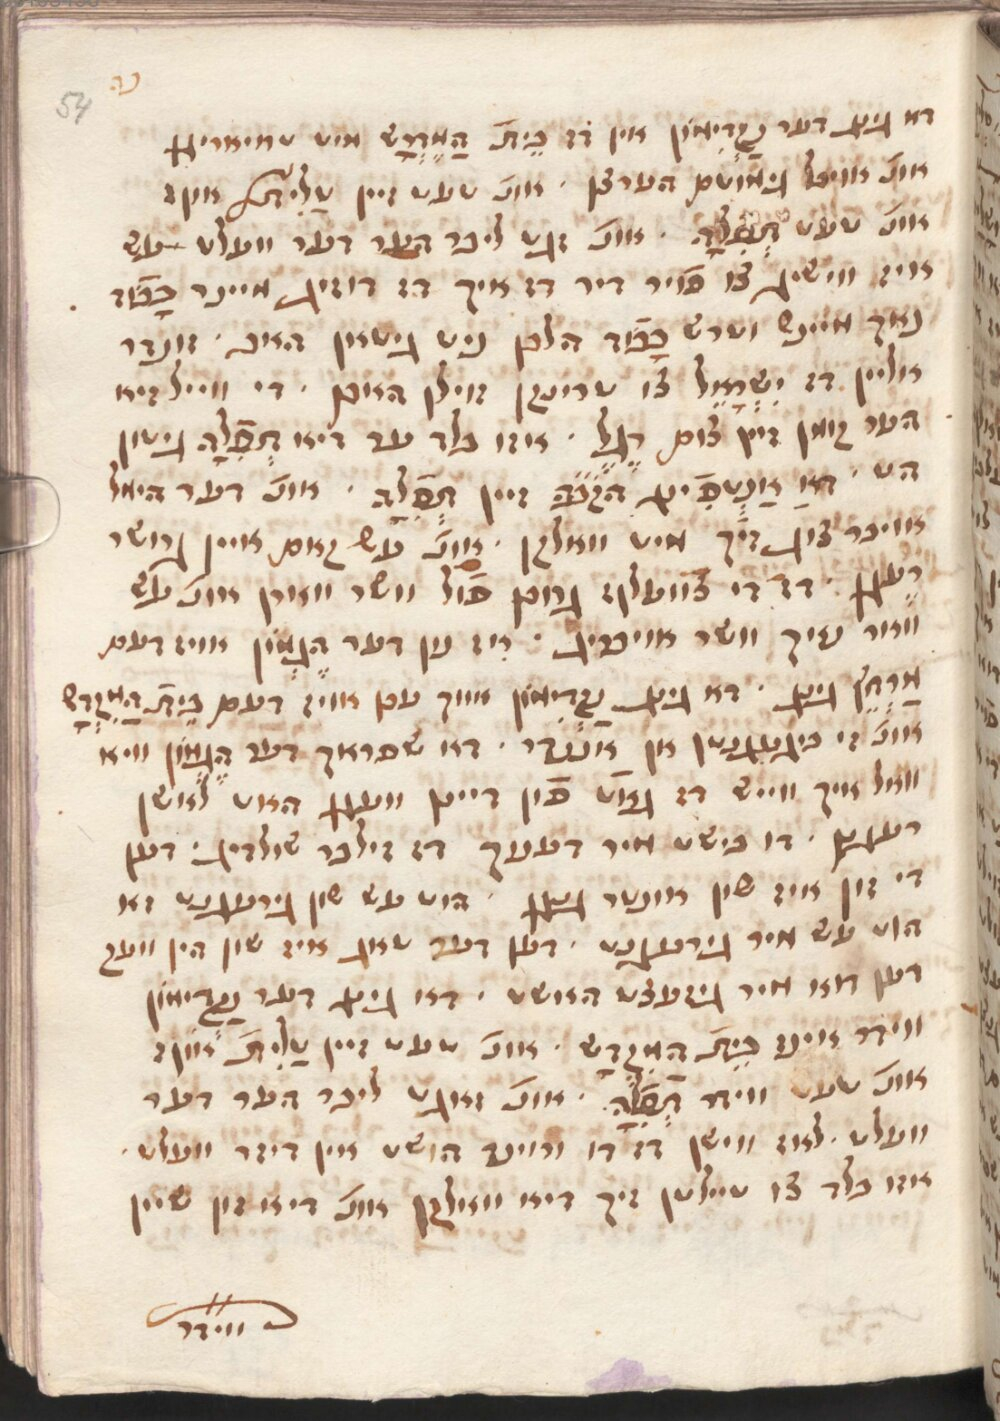 54
נה
דא גינג דער נַקְדִימוֹן אין דז בֵּית הַמִקְדָשׁ מיט טרויאריגן
אונ' אויפל גימוטם הערצן · אונ' טעט זיין טַלִית אונז
אונ' טעט תְּפִלָּה · אונ' זגט ליבר הער דער וועלט עש
איז ווישיג צו פֿויר דיר דז איך דז דוזיג מיינר כָּבוֹד
נאך מיינש וטרש כָּבוֹד הלבן ניט גיטאן האב · זונדר
אליין דז יִשְׂרָאֵל צו טרינקן זוילן האבן · די ווייל זיא
הער גומן זיין צום רֶגֶל · אזו בלד ער דיא תְּפִלָּה גיטון
הט · דא זיין תְּפִלָּה · אונ' דער הימל
אויבר צוג זיך מיט וואלקן · אונ' עש קאם איין גרושר
רעגן · דז די צוועלף גרובן פֿול וושר ווארן אונ' עש
וואר נאך וושר אויבריג · אז נון דער הֶגְמוֹן אויז דעם
מֶרְחָץ גינג · דא גינג נַקְדִימוֹן אויך עם אויז דעם בֵּית הַמִקְדָשׁ
אונ' זי ביגעגנטן אן אנדר · דא שפראך דער הֶגְמוֹן וויא
וואל איך ווייש דז גאָט פֿון דיינן וועגן האט לאזן
רעגנן · דו בישט מיר דעכך דז זילבר שולדיג · דען
די זון איז שון אונטר גנגן · הוט עש שון גירעגנט זא
הוט עש מיר גירעגנט · דען דער טאג איז שון הין וועג
דען דוא מיר גיזעצט האשט · דא גינג דער נַקְדִימוֹן
ווידר אינז בֵּית הַמִקְדָשׁ · אונ' טעט זיין טַלִית אונז
אונ' טעט ווידר תְּפִלָּה · אונ' זאגט ליבר הער דער
וועלט · לאז ווישן דז דו ורויינד הושט אין דיזר וועלט ·
אזו בלד צו טיילטן זיך דיא וואולקן אונ' דיא זון שיין
ווידר